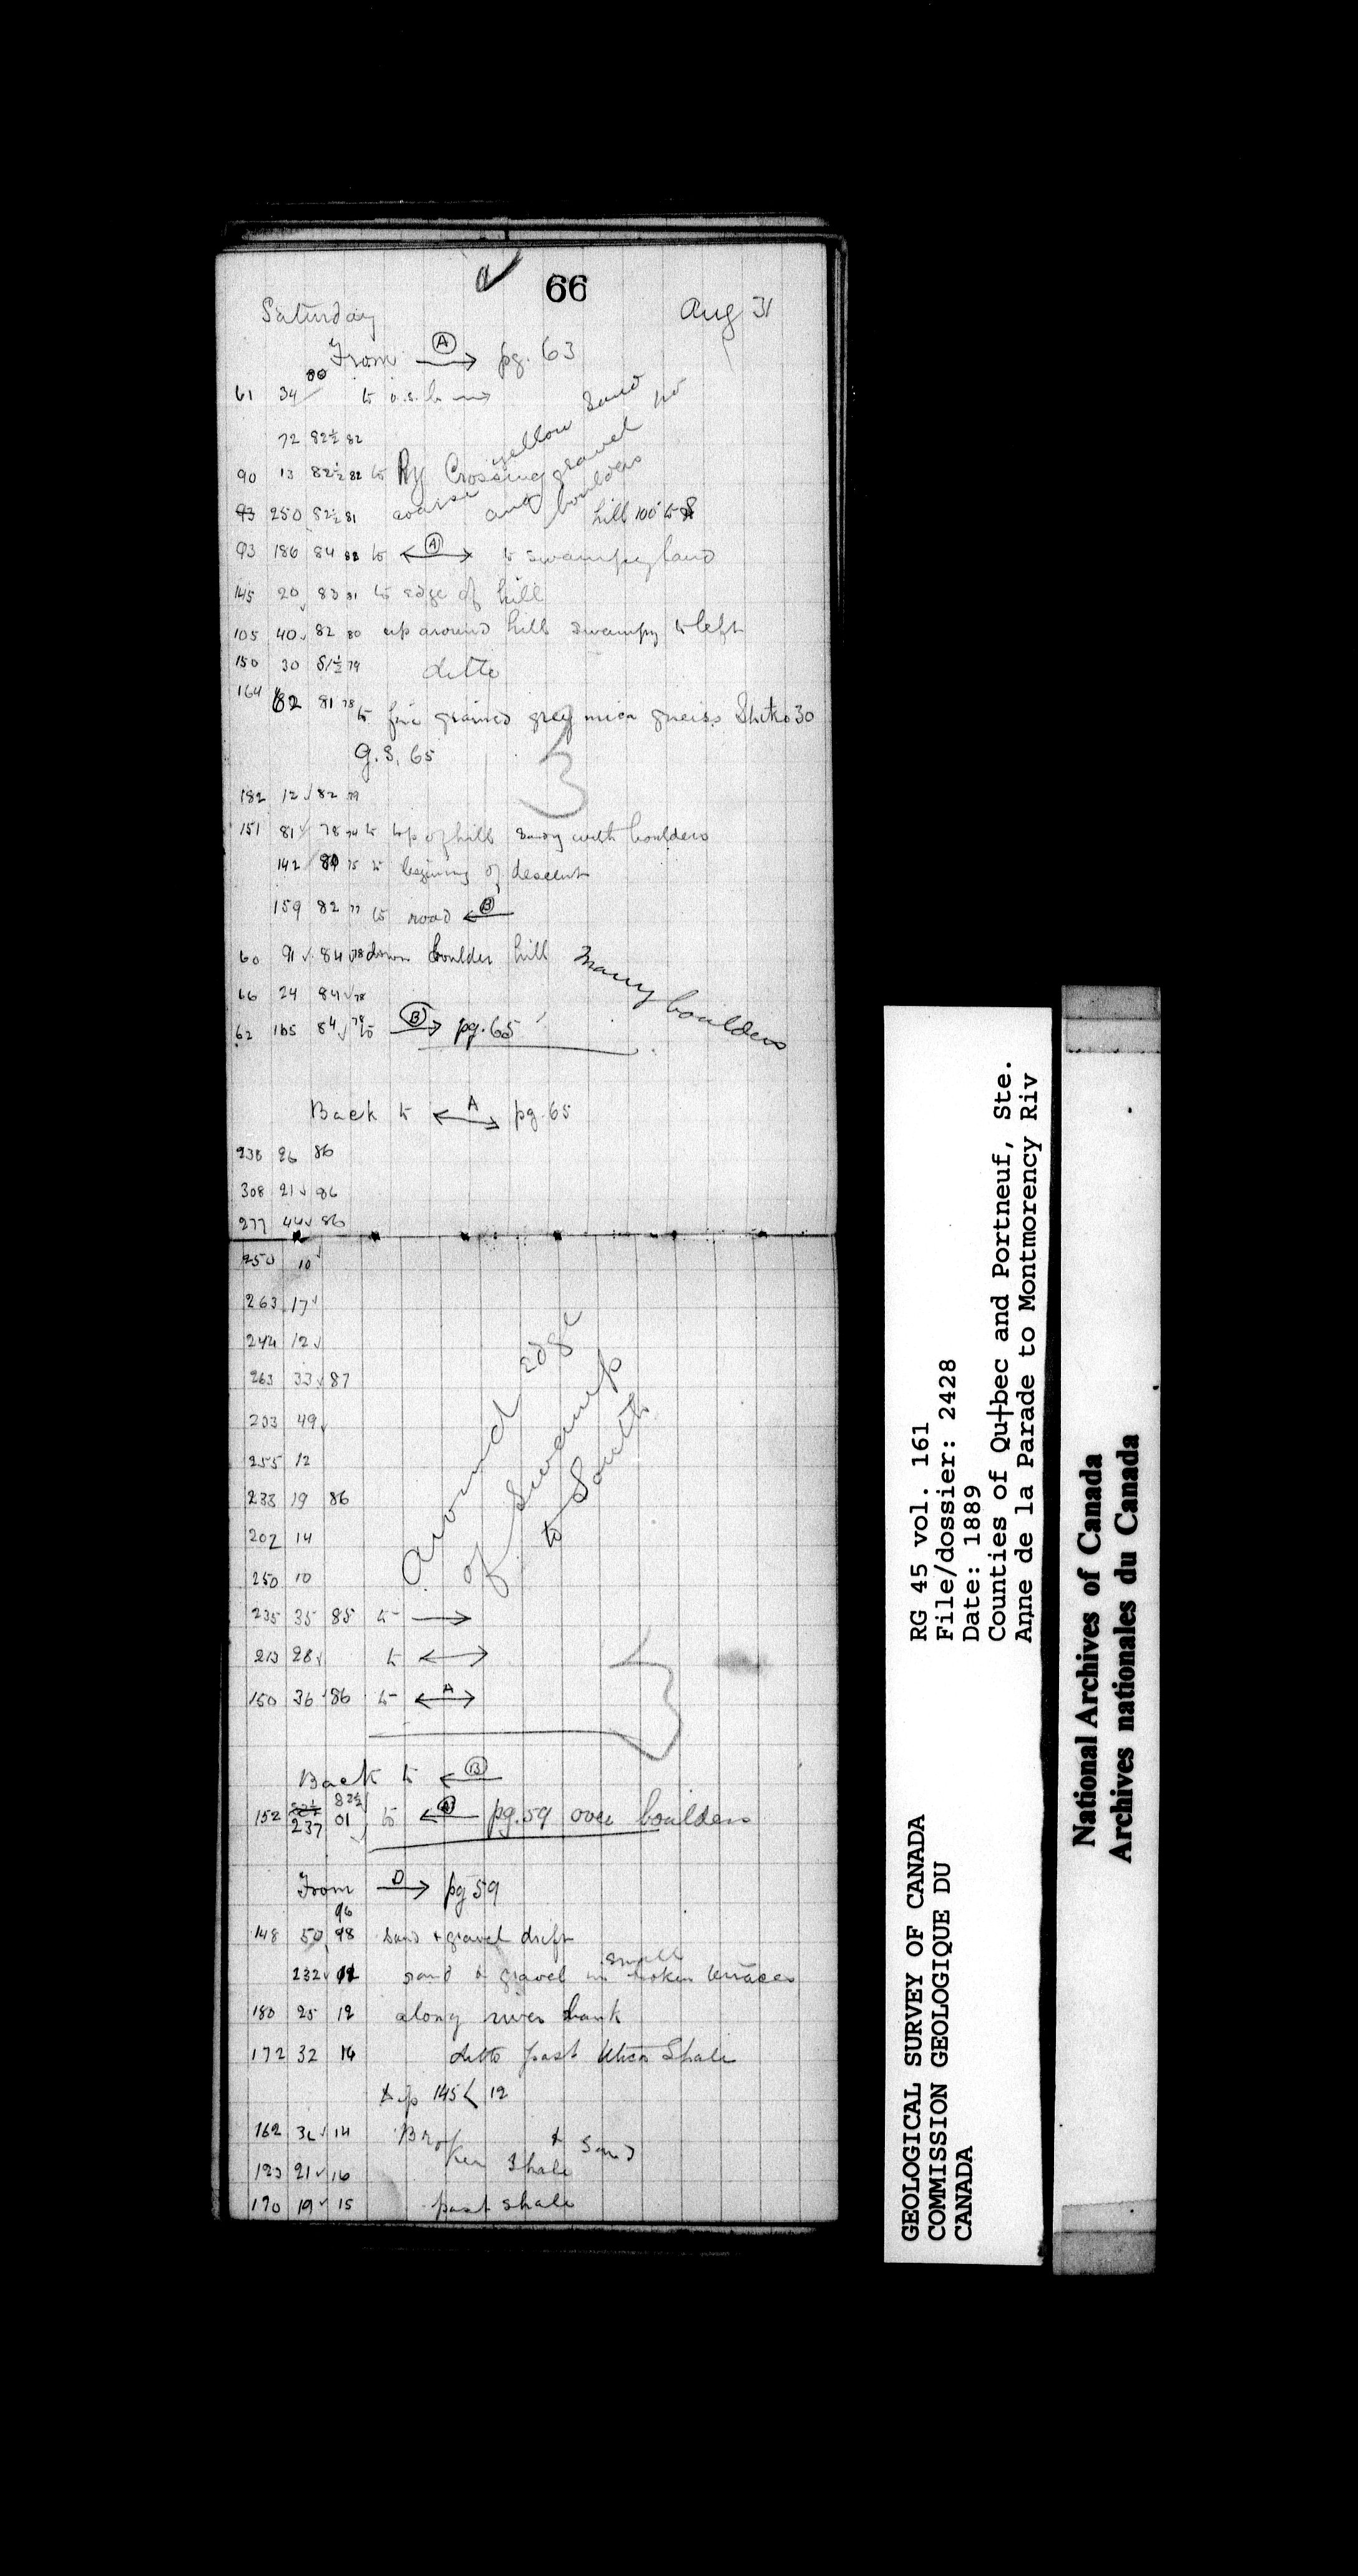 66
Saturday Aug 31
From Ⓐ → pg. 63
61 34 80 to o.s.l. →
72 82½ 82
90 13 82½ 82 to Ry Crossing
yellow sand
coarse gravel no
and boulders
93 250 82½ 81 hill 100 to
93 186 84 82 to ←Ⓐ→ to swampy land
145 20 83 81 to edge of hill
105 40 82 80 up around hill swampy to left
150 30 81½ 79 ditto
164 82 81 78 to fine grained grey mica gneiss Strike 30
G.S. 65
182 12 82 79
151 81 78 74 to top of hill sandy with boulders
142 80 75 to begining of descent
159 82 77 to road ← Ⓑ
60 91 84 78 down boulder hill many boulders
66 24 84 78
62 165 84 78 to Ⓑ → pg. 65
Back to ←A→ pg. 65
238 26 86
308 21 86
277 44 86
250 10
263 17
244 12
263 33 87
203 49
255 12
233 19 86
202 14
250 10
Around edge
of Swamp
to South
235 35 85 to →
213 28 to ↔
150 36 86 to ←A→
Back to ← Ⓑ
82½
152 237 01 to ← Ⓐ pg. 59 over boulders
From D → pg 59
96
148 50 98 Sand + gravel drift
232 12 sand & gravel in small broken terraces
180 25 12 along river bank
172 32 14 ditto past Utica Shale
dip 145 < 12
162 32 14 Broken Shale & Sand
123 21 16
170 19 15 past shale
RG 45 vol. 161
File/dossier: 2428
Date: 1889
Counties of Qu†bec and Portneuf, Ste.
Anne de la Parade to Montmorency Riv
GEOLOGICAL SURVEY OF CANADA
COMMISSION GEOLOGIQUE DU
CANADA
National Archives of Canada
Archives nationales du Canada